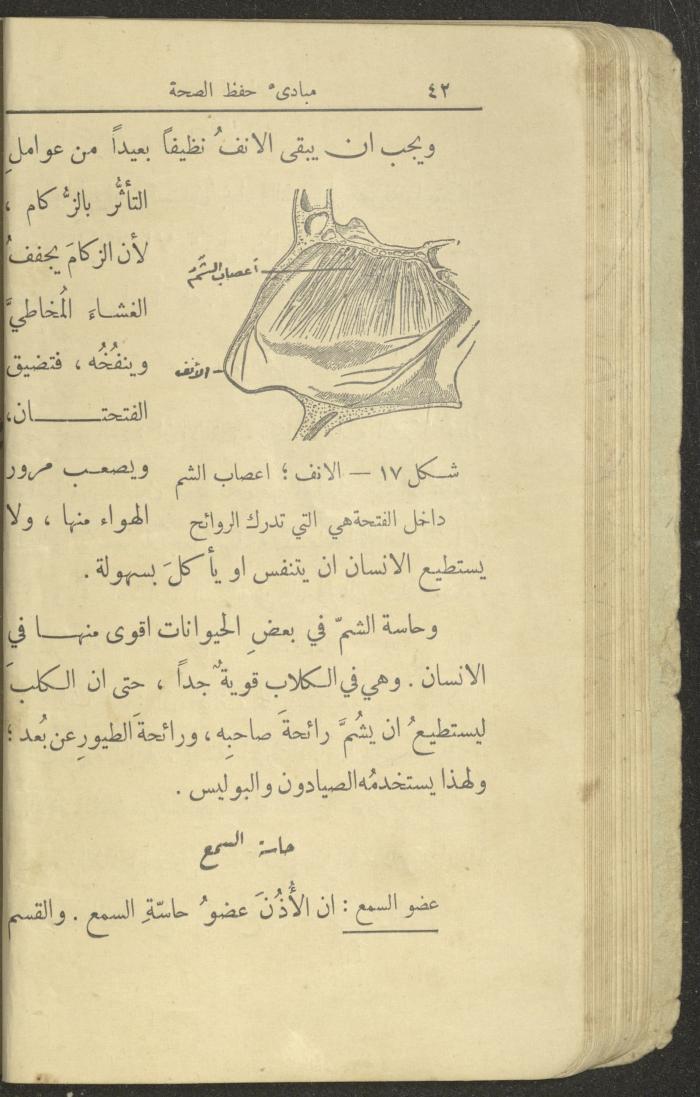 ٤٢ مبادىء حفظ الصحة
ويجب ان يبقى الانفُ نظيفاً بعيداً من عواملِ
التأثُّر بالزُّكام ،
لأن الزكامَ يجففُ
الغشاءَ المُخاطيَّ
وينفُخُه ، فتضيق
الفتحتـــان،
ويصعب مرور
الهواء منها ، ولا
أعصاب الشمّ
الأنف
شكل ١٧ — الانف ؛ اعصاب الشم
داخل الفتحة هي التي تدرك الروائح
يستطيع الانسان ان يتنفس او يأكلَ بسهولة .
وحاسة الشمّ في بعضِ الحيوانات اقوى منهـا في
الانسان . وهي في الكلاب قويةٌ جداً ، حتى ان الكلبَ
ليستطيعُ ان يشُمَّ رائحةَ صاحبِه ، ورائحةَ الطيورِ عن بُعد ؛
ولهذا يستخدمُه الصيادون والبوليس .
حاسة السمع
عضو السمع : ان الأُذُنَ عضوُ حاسّةِ السمع . والقسم